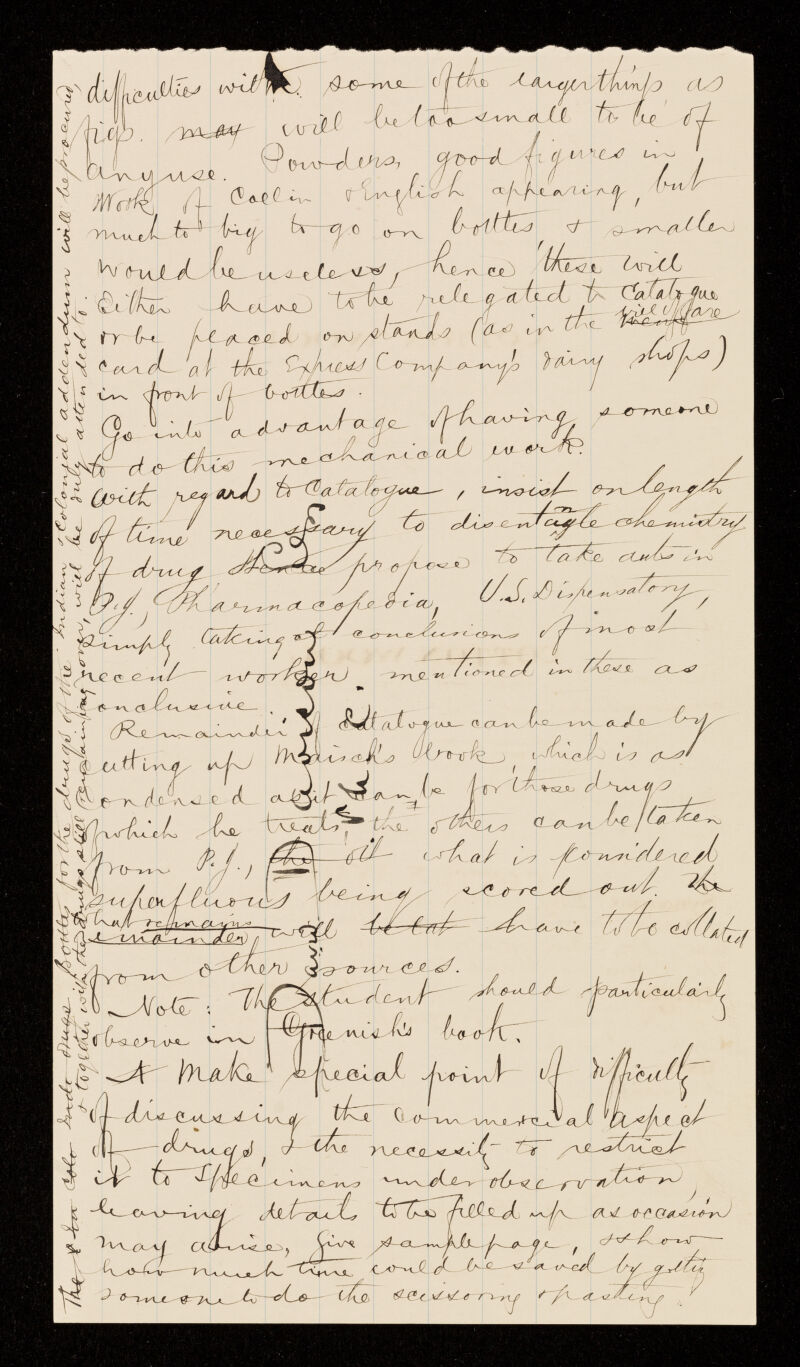 difficulties with some of the larger things as
figs. may will be too small to be of
any use. Powders, good figures in
work of Collin & English appearing, but
much to big to go on bottles, & smaller
would be useless, hence these will
Either have to be relegated to Catalogue
or be placed on stands (as in the
card at the Express Company's dairy shops)
in front of bottles.
Go into advantage of having someone
to do this mechanical work.
With regard to Catalogue, insist on length
of time necessary to disentangle chemistry
of drug Hence propose to take cuts in
P.J., Pharmacopoedia, U.S. Dispensatory,
simply taking conclusions of most
recent worker mentioned in these as
conclusive.
Remainder of catalogue can be made by
cutting up Maisch's book, which is as
condensed as it can be for those drugs
which he treats, the others can be taken
from P.J., the oil what is considered
superfluous being scored out. The
that remains
remainder will be cut have to be collated
from other sources.
Note: The student should particularly
observe in Greenish's book.
& Make special point of difficulty
of discussing the commercial aspect
of drugs, & the necessity to restrict
it to specimens under observation,
leaving details to be filled up as occasion
may arise, Give sample page, & show
how much time could be saved by getting
someone to do the scissoring & pasting.
The Colo Inde drugs bottles for the drugs of the Indian & Colonial addendum will be procured,
& together with the drugs still remaining over, will be duly attended to.
David